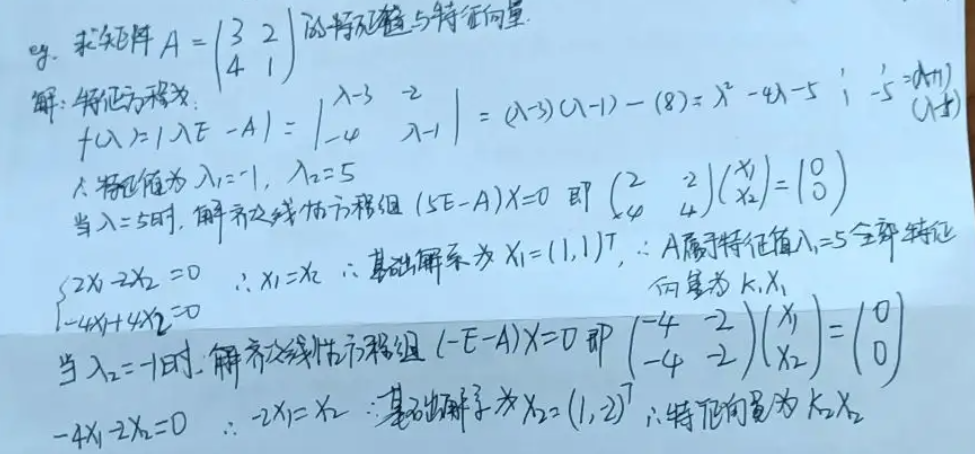 eg. 求矩阵 A = (3 2; 4 1) 的特征值与特征向量.
解: 特征方程为:
f(λ)=|λE-A| = |λ-3 -2; -4 λ-1| = (λ-3)(λ-1) - (8) = λ² - 4λ - 5 = (λ+1)(λ-5)
∴ 特征值为 λ₁=-1, λ₂=5
当 λ=5时, 解齐次线性方程组 (5E-A)X=0 即 (2 2; -4 4)(x₁; x₂) = (0; 0)
{2x₁-2x₂=0; -4x₁+4x₂=0 ∴ x₁=x₂ ∴ 基础解系为 X₁=(1,1)ᵀ, ∴ A属于特征值λ₁=5全部特征
向量为 k₁X₁
当 λ₂=-1时, 解齐次线性方程组 (-E-A)X=0 即 (-4 -2; -4 -2)(x₁; x₂) = (0; 0)
-4x₁-2x₂=0 ∴ -2x₁=x₂ ∴ 基础解系为 X₂=(1,2)ᵀ ∴ 特征向量为 k₂X₂